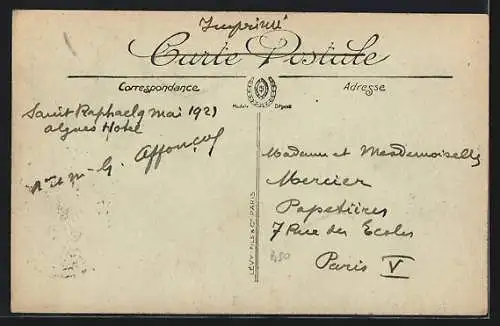 Imprimé
Carte Postale
Correspondance
Adresse
Modèle Déposé
Saint Raphael 9 mai 1921
algues Hotel
Mr et Me G.
Madame et Mesdemoiselles
Mercier
Papetières
7 Rue des Ecoles
Paris V
LEVY FILS & Cie PARIS
450